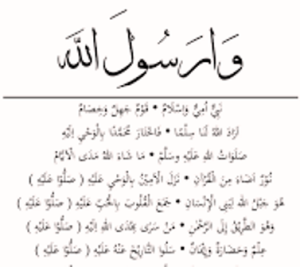 وَا رَسُولَ اللَّه
نَبِيٌّ أُمِّيٌّ وَإِسْلَامٌ • قَوْمُ جَهْلٍ وَخِصَامٌ
أَرَادَ اللَّهُ لَنَا سِلْمًا • فَاخْتَارَ مُحَمَّدًا بِالْوَحْيِ إِلَيْهِ
صَلَوَاتُ اللَّهِ عَلَيْهِ وَسَلَّمْ • مَا شَاءَ اللَّهُ مَدَى الْأَيَّامْ
نُورٌ أَضَاءَ مِنَ الْقُرْآنِ • نَزَلَ الْأَمِينُ بِالْوَحْيِ عَلَيْهِ ( صَلُّوا عَلَيْهِ )
هُوَ حَبْلُ اللَّهِ لِبَنِي الْإِنْسَانِ • جَمَعَ الْقُلُوبَ بِالْحُبِّ عَلَيْهِ ( صَلُّوا عَلَيْهِ )
وَهُوَ الطَّرِيقُ إِلَى الرَّحْمَٰنِ • مَنْ سَرَى بِهُدَى اللَّهِ إِلَيْهِ ( صَلُّوا عَلَيْهِ )
عِلْمٌ وَحَضَارَةٌ وَإِيمَانٌ • سَلُوا التَّارِيخَ عَنْهُ عَلَيْهِ ( صَلُّوا عَلَيْهِ )